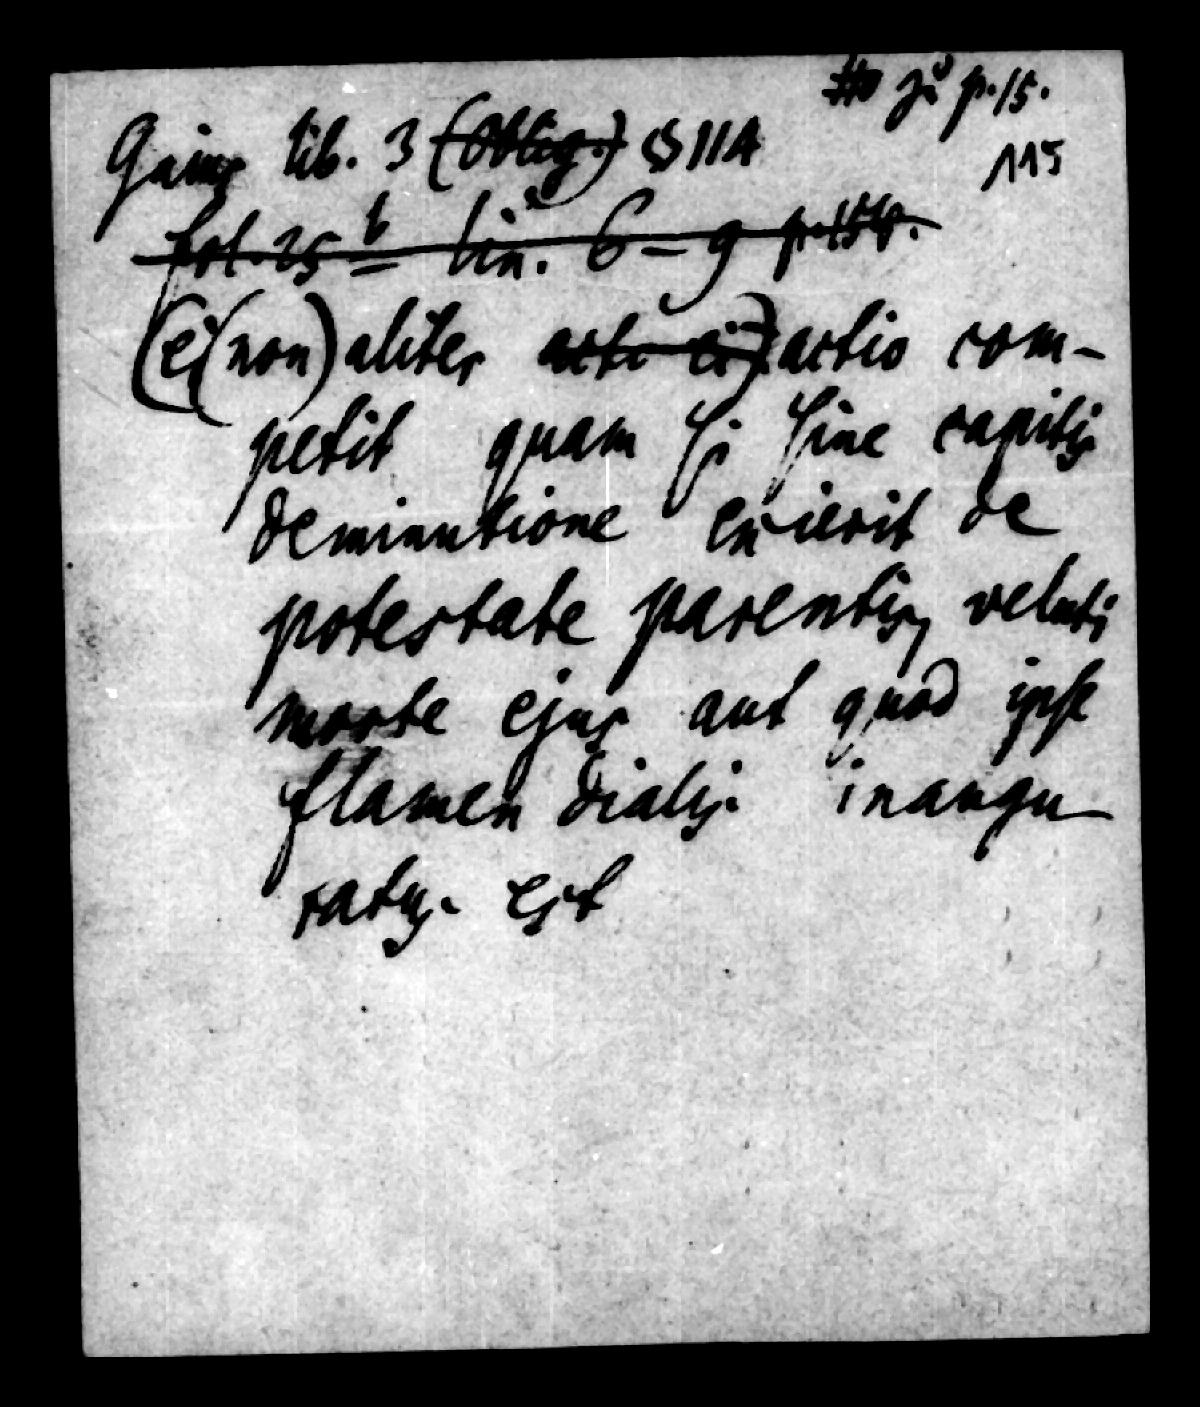 zu p. 15.
115
Gaius lib. 3 (Oblig.) § 114
fol. 25 b lin. 6 – 9 p. 158.
(ei (non) aliter acti ei) actio com-
petit quam si sine capitis
deminutione exierit de
potestate parentis, veluti
morte ejus aut quod ipse
flamen dialis inaugu
ratus est